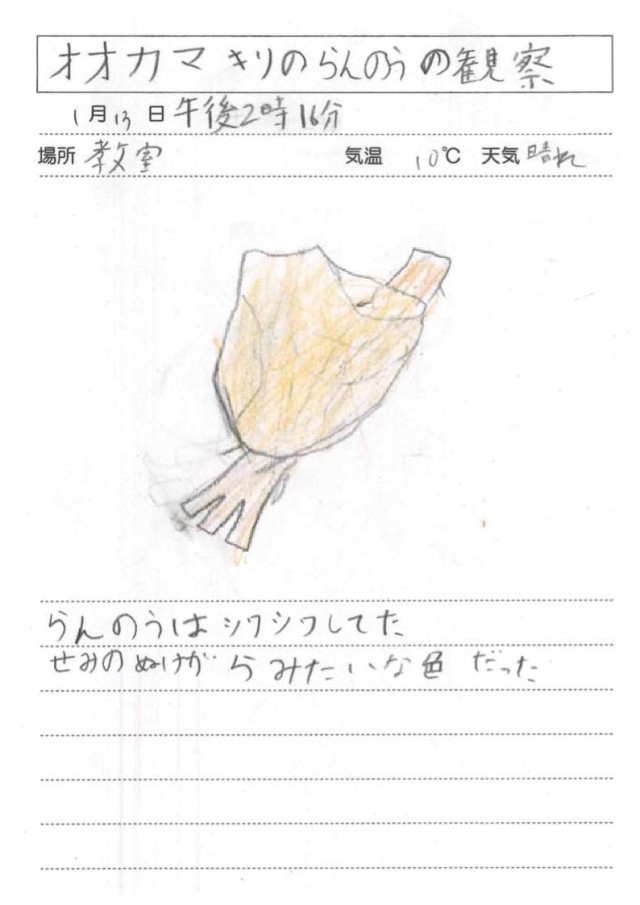 オオカマキリのらんのうの観察
1月13日午後2時16分
場所 教室 気温 10℃ 天気 晴れ
らんのうはシワシワしてた
せみのぬけがらみたいな色だった